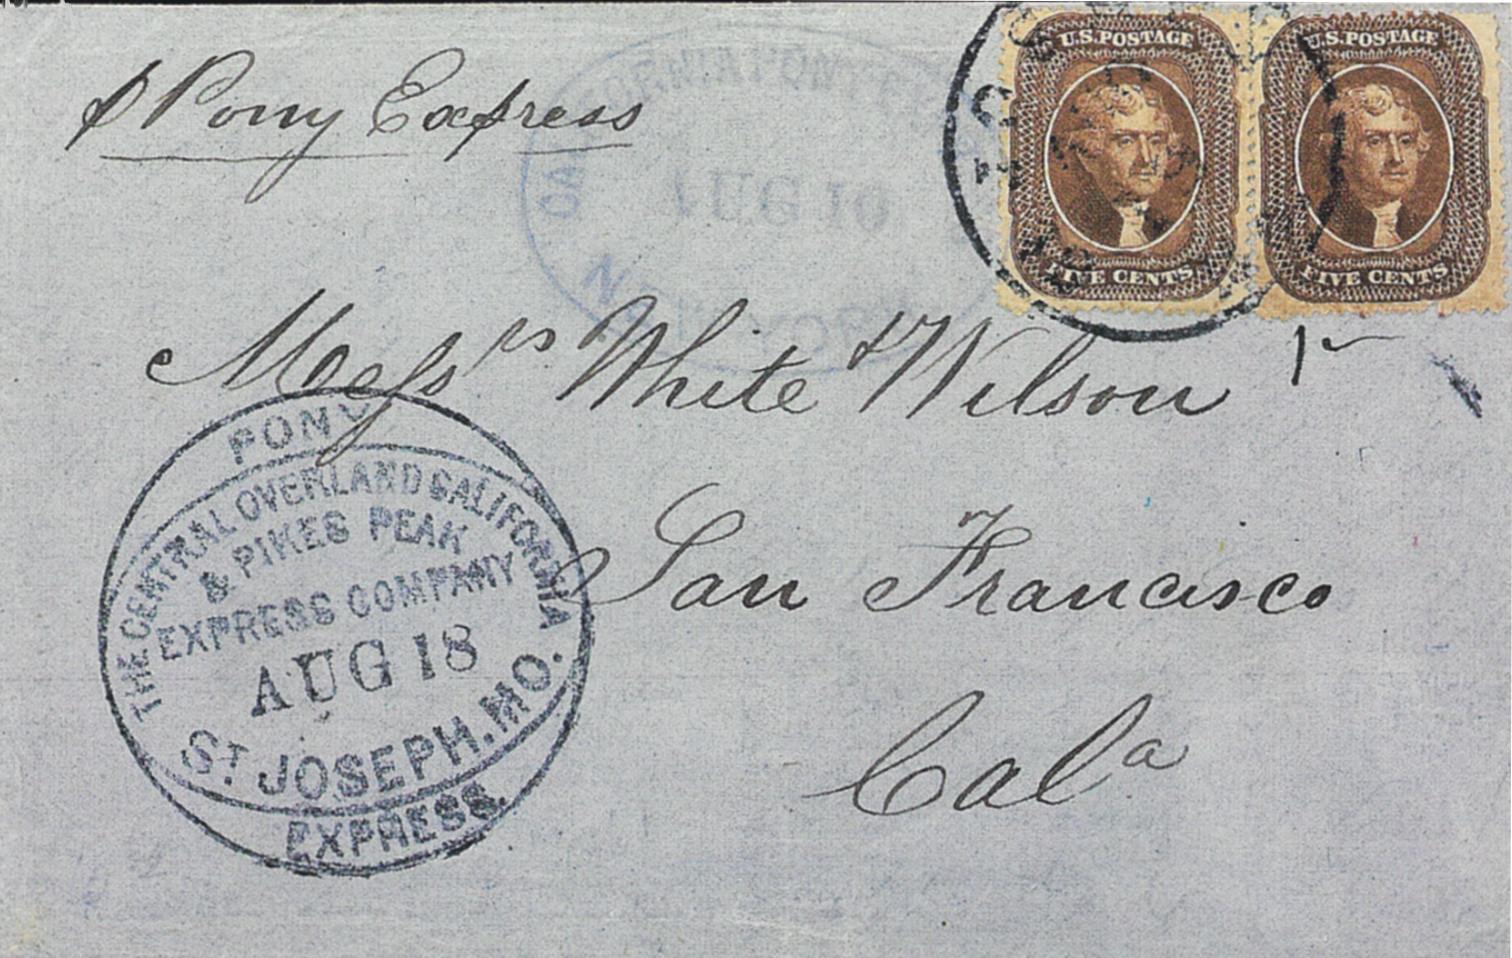 ℘ Pony Express
CALIFORNIA PONY EXPRESS
AUG 10
NEW YORK
U.S. POSTAGE
FIVE CENTS
U.S. POSTAGE
FIVE CENTS
Messrs White & Wilson
San Francisco
Cala
PONY
THE CENTRAL OVERLAND CALIFORNIA
& PIKES PEAK
EXPRESS COMPANY
AUG 18
ST JOSEPH. MO.
EXPRESS.